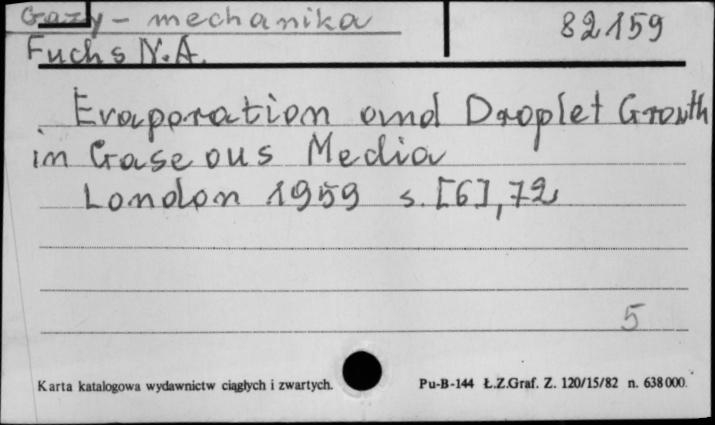 Gazy - mechanika 82159
Fuchs N.A.
Evaporation and Droplet Growth
in Gaseous Media
London 1959 s. [6], 72
5
Karta katalogowa wydawnictw ciągłych i zwartych. Pu-B-144 Ł.Z.Graf. Z. 120/15/82 n. 638000.